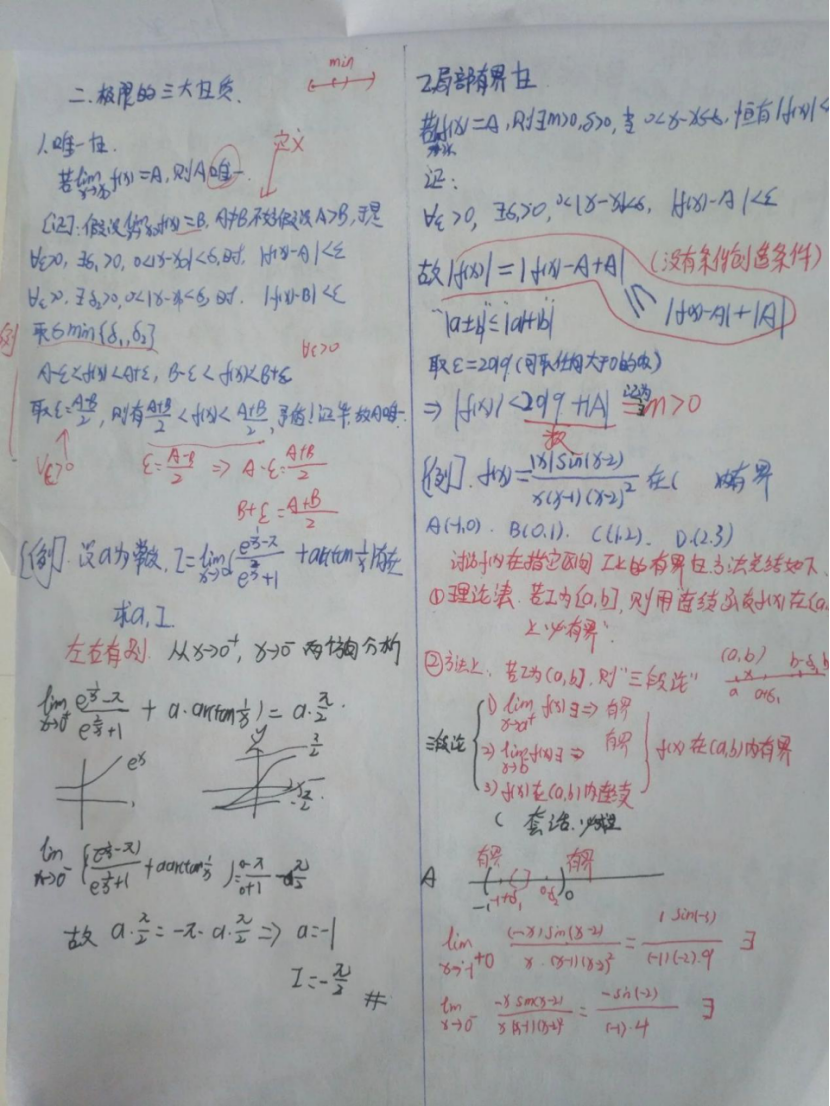 二.极限的三大性质.
min
1.唯一性.
定义
若lim x→x₀ f(x)=A,则A唯一.
[证]:假设lim x→x₀ f(x)=B, A≠B,不妨假设A>B,于是
∀ε>0, ∃δ₁>0, 0<|x-x₀|<δ₁时, |f(x)-A|<ε
∀ε>0, ∃δ₂>0, 0<|x-x₀|<δ₂时, |f(x)-B|<ε
取δ min{δ₁,δ₂}
∀ε>0
A-ε<f(x)<A+ε, B-ε<f(x)<B+ε
取ε=(A-B)/2, 则有(A+B)/2<f(x)<(A+B)/2,矛盾!证毕,故A唯一
∀ε>0
ε=(A-B)/2 ⇒ A-ε=(A+B)/2
B+ε=(A+B)/2
[例].设a为常数, I=lim x→0 (
+aarctan 1/x)存在
求a,I.
左右有别. 从x→0⁺, x→0⁻两方向分析
+ a·arctan(1/x)) = a·π/2.
e^x
y
π/2
-π/2
故 a·π/2=-π-a·π/2 ⇒ a=-1
I=-π/2 #
2.局部有界性
f(x)=A,则∃m>0,δ>0,当0<|x-x₀|<δ,恒有|f(x)|<
证:
∀ε>0, ∃δ>0, 0<|x-x₀|<δ, |f(x)-A|<ε
故|f(x)|=|f(x)-A+A| (没有条件创造条件)
≤ |f(x)-A|+|A|
"|a±b|≤|a|+|b|"
取ε=2019(可取任何大于0的数)
⇒ |f(x)|<2019+|A| 记为 = m>0
数
[例]. f(x)=|x|sin(x-2)/x(x-1)(x-2)² 在( )内有界
A(-1,0). B(0,1). C(1,2). D.(2,3)
讨论f(x)在指定区间I上的有界性,方法总结如下.
①理论法.若I为[a,b],则用连续函数f(x)在[a,
上必有界.
②方法上.若I为(a,b),则"三段论"
(a,b)
a a+δ₁ b-δ₂ b
三段论
1) lim x→a⁺ f(x)∃⇒有界
2) lim x→b⁻ f(x)∃⇒有界
3) f(x)在(a,b)内连续
f(x)在(a,b)内有界
(套话.
A
有界 有界
-1 -1+δ₁ 0-δ₂ 0
lim x→-1+0 (-x)sin(x-2)/x·(x-1)(x-2)² = 1 sin(-3)/(-1)(-2)·9 ∃
lim x→0⁻ -x sin(x-2)/x(x-1)(x-2)² = -sin(-2)/(-1)·4 ∃